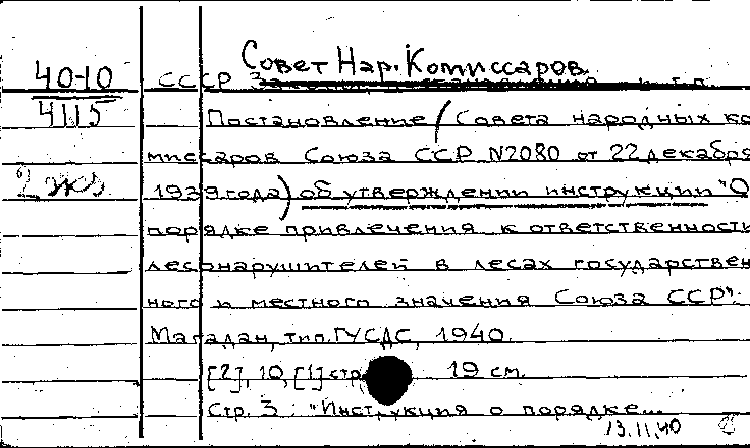 Совет Нар. Комиссаров.
40-10
4115
СССР
Постановление (Совета народных ко
миссаров Союза ССР N2080 от 22 декабря
2 экз
1939 года) об утверждении инструкции "О
порядке привлечения к ответственности
лесонарушителей в лесах государствен
ного и местного значения Союза ССР".
Магадан, тип. ГУСДС, 1940.
[2], 10, [1] стр. 19 см.
Стр. 3: "Инструкция о порядке...
13.11.40